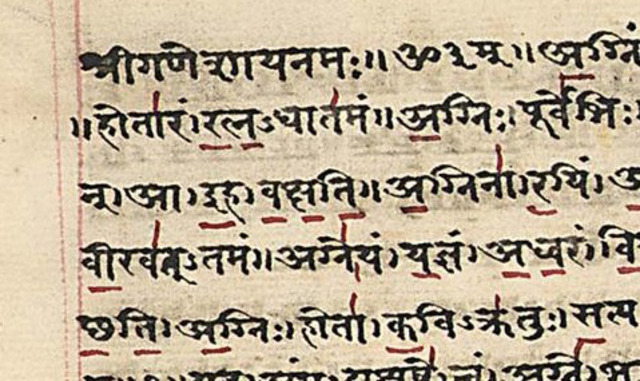 श्रीगणेशायनमः॥ॐ३म्॥अग्निं
॥होतारं।रत्नऽधातमं॥अग्निः।पूर्वेभिः
न्।आ।इह।वक्षति॥अग्निना।रयिं।
वीरवत्ऽतमं॥अग्ने।यं।यज्ञं।अध्वरं।वि
ष्ठति।अग्निः।होता।कविऽक्रतुः।सत्य